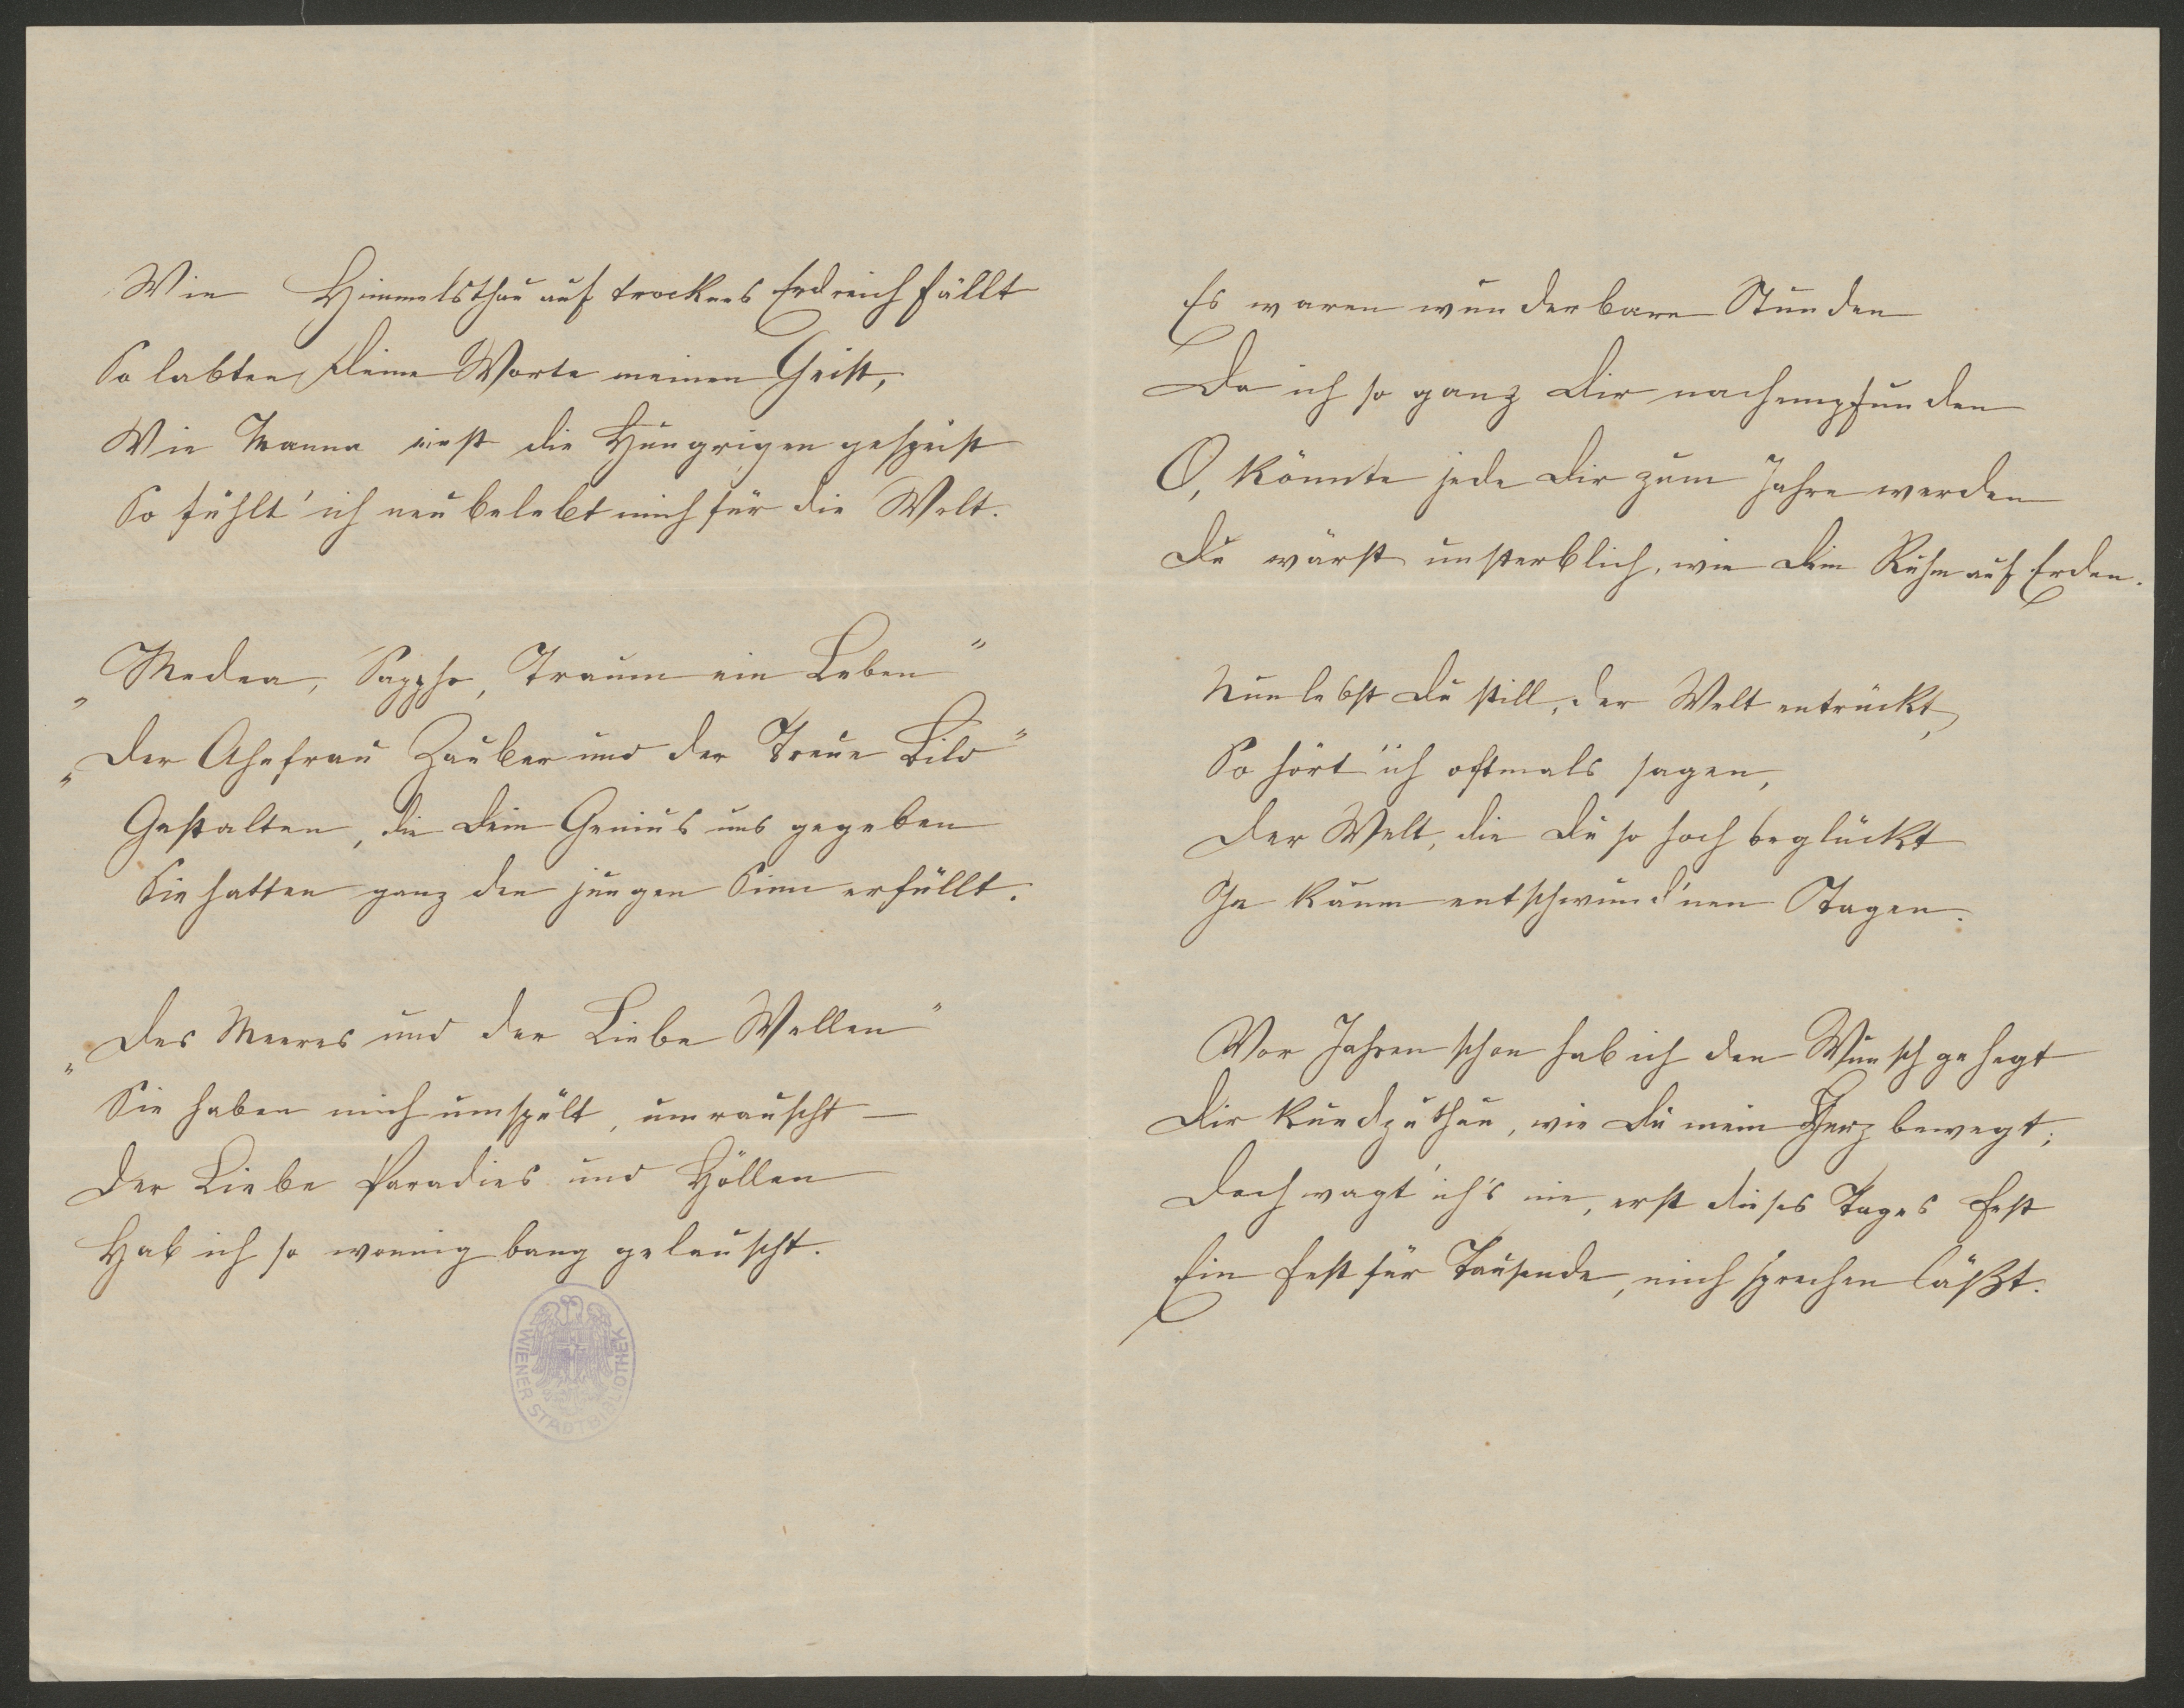 Wie Himmelsthau auf trocknes Erdreich fällt
So labten Deine Worte meinen Geist,
Wie Manna einst die Hungrigen gespeist
So fühlt' ich neu belebt mich für die Welt.
„Medea, Sappho, Traum ein Leben"
„Der Ahnfrau Zauber und der Treue Bild"
Gestalten, die Dein Genius uns gegeben
Sie hatten ganz den jungen Sinn erfüllt.
„Des Meeres und der Liebe Wellen"
Sie haben mich umspült, umrauscht –
Der Liebe Paradies und Höllen
Hab ich so wonnig bang gelauscht.
WIENER STADTBIBLIOTHEK
Es waren wunderbare Stunden
Da ich so ganz Dir nachempfunden
O, könnte jede Dir zum Jahre werden
Du wärst unsterblich, wie Dein Ruhm auf Erden.
Nun lebst Du still, der Welt entrückt,
So hört' ich oftmals sagen,
Der Welt, die Du so hoch beglückt
In kaum entschwund'nen Tagen.
Vor Jahren schon hab ich den Wunsch gehegt
Dir kundzuthun, wie Du mein Herz bewegt;
Doch wagt' ich's nie, erst dieses Tages Fest
Ein Fest für Tausende, mich sprechen läßt.